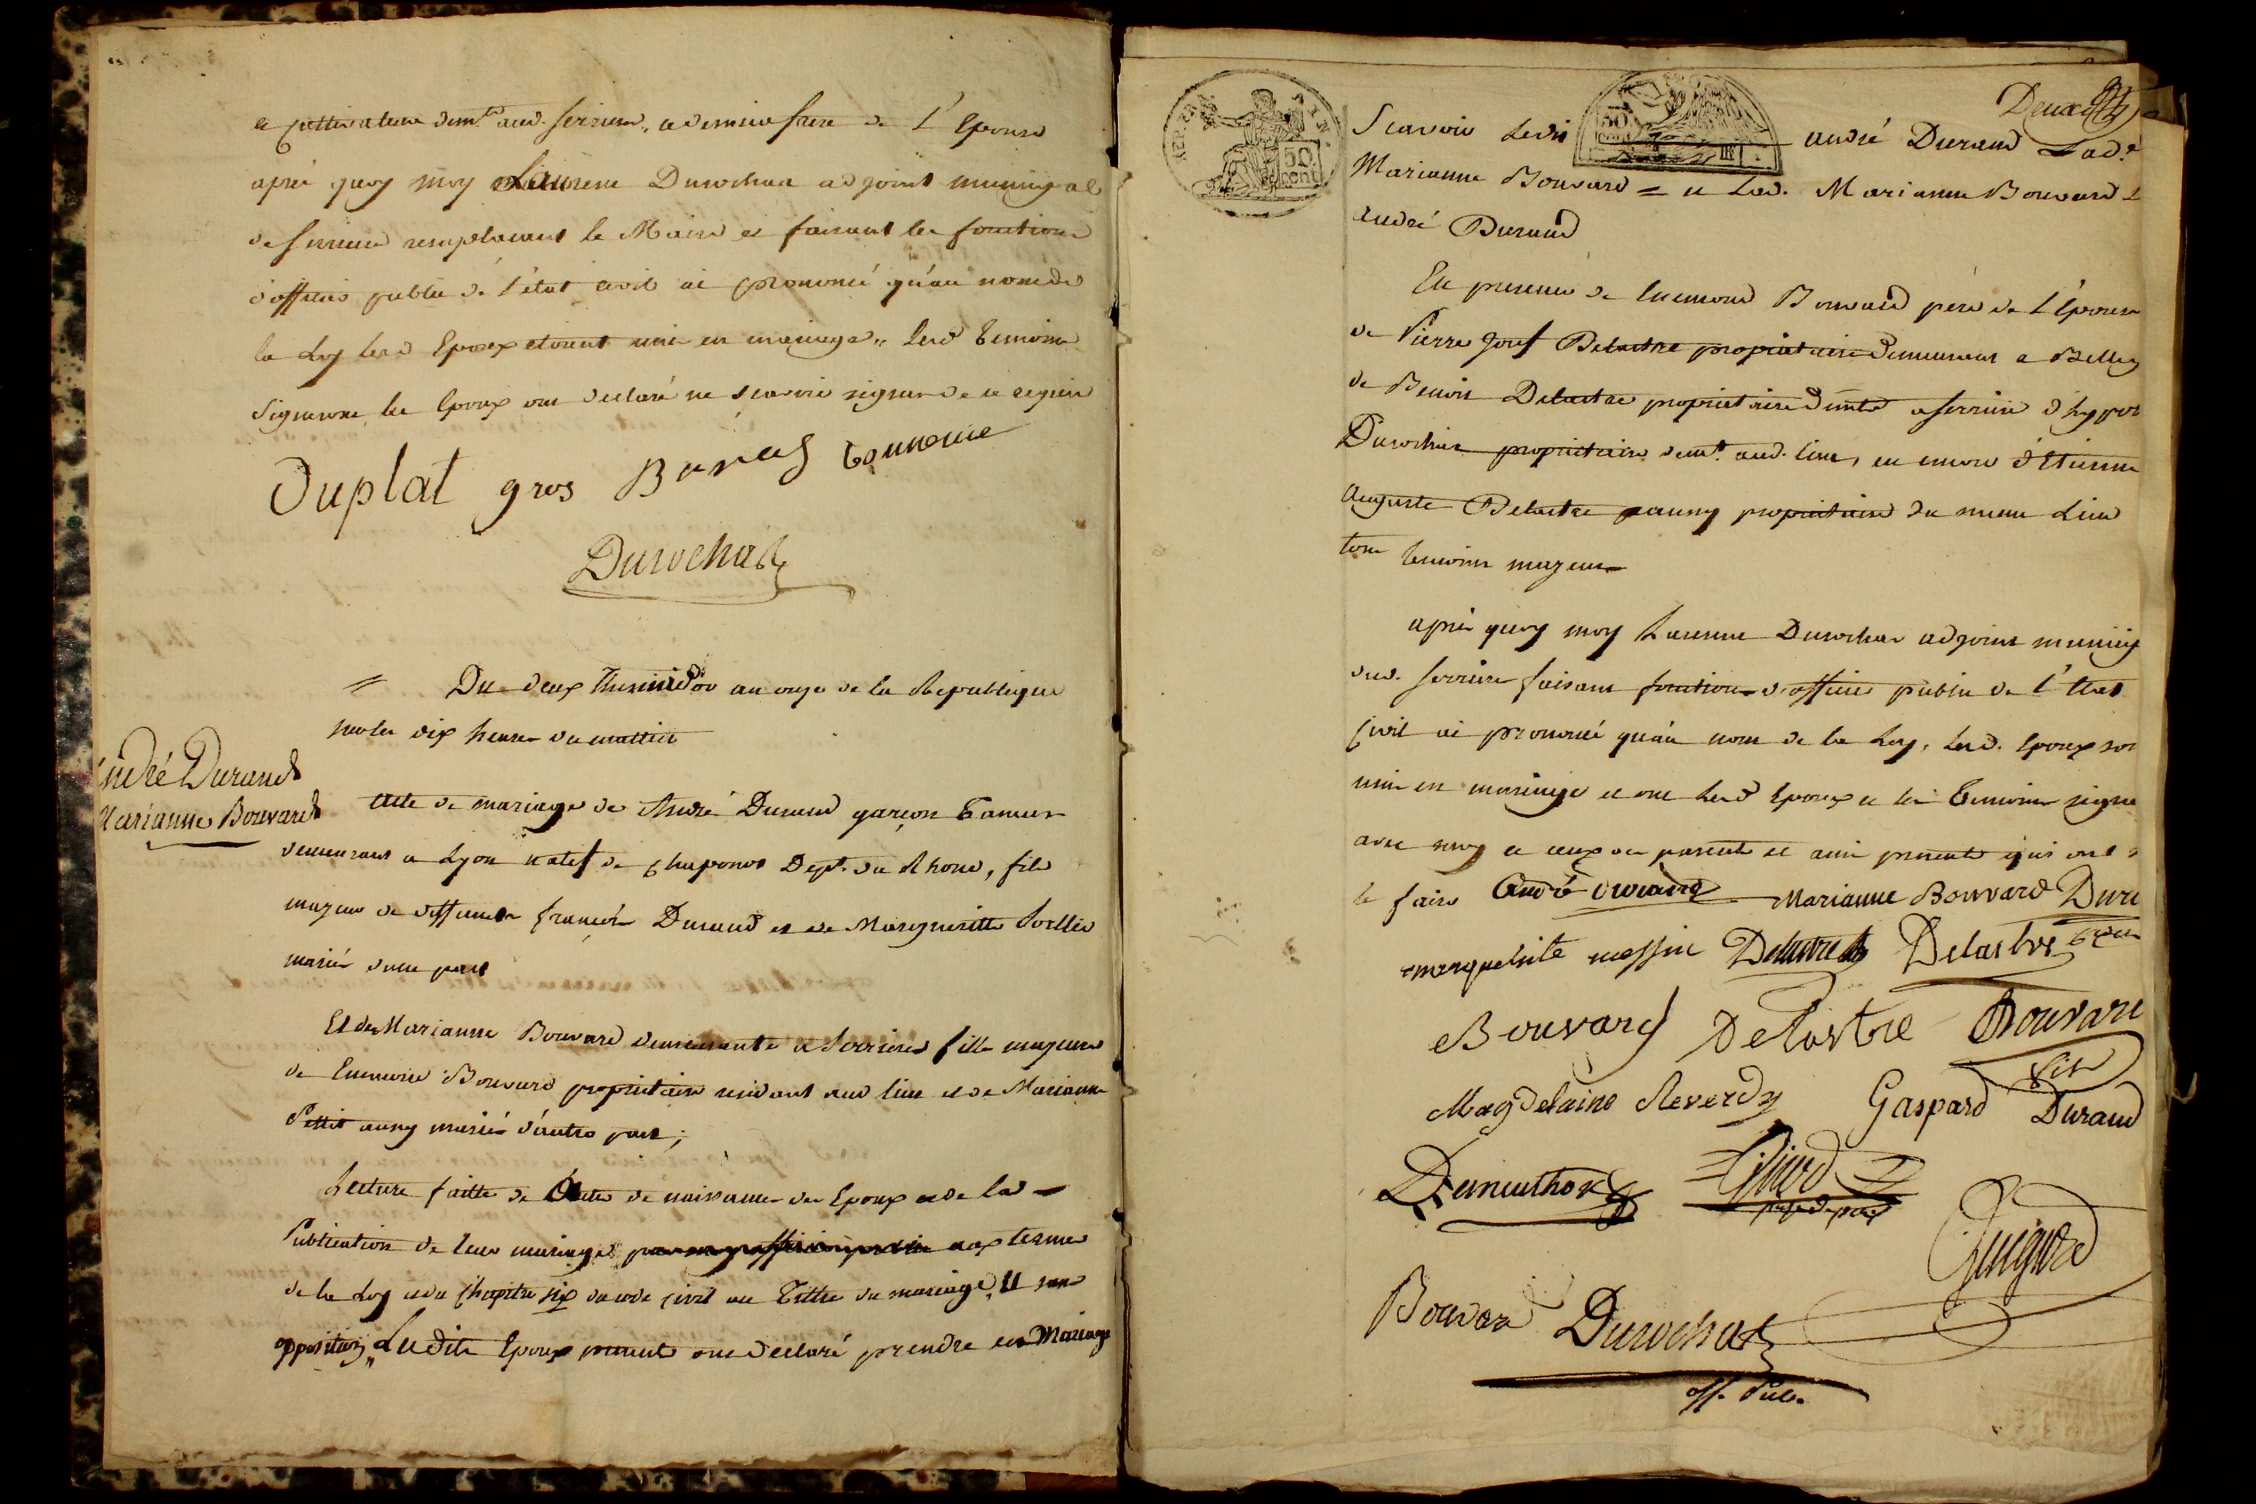 et cultivateur demt. aud. Serrieres, et demie faire de L'Epouse
après quoy moy Laurent Durochat adjoint municipal
de Serrieres remplacant le Maire et faisant les fonctions
d'officier public de l'état civil ai prononcé qu'au nom de
la Loy lesd Epoux etoient unis en mariage, Lesd temoins
signeront les Epoux ont declaré ne scavoir signer de ce requis
Duplat gros
Durochat
Du deux Thermidor an onze de la Republique
sur les dix heures du mattin
André Durand
Marianne Bouvard
Acte de mariage de André Durand garçon Taneur
demeurant a Lyon natif de Chaponost Dept. du Rhone, fils
majeur de deffunts François Durand et de Margueritte
mariés d'une part
Et de Marianne Bouvard demeurante a Serrieres fille majeure
de Enemond Bouvard propriétaire residant aud lieu et de Marianne
Pettit aussy mariés d'autre part;
Lecture faitte de Actes de naissance des Epoux et de la
Publication de leur mariage aux termes
de la Loy et du Chapitre six du code civil au Tittre du mariage, et sans
opposition, Lesdits Epoux presents ont declaré prendre en Mariage
Deux
Scavoir Ledit André Durand Lad.e
Marianne Bouvard = et Lad. Marianne Bouvard L
André Durand
AN.
50 cent
50 cent
En presence de Enemond Bouvard père de L'Epouse
de Pierre Josef Delastre propriétaire demeurant a Belley
de Benoit Delastre propriétaire demt a Serriere d'hypol
Durochat propriétaire demt. aud. lieu, et encore d'Etienne
Auguste Delastre aussy propriétaire du meme Lieu
tous temoins majeurs
après quoy moy Laurent Durochat adjoint municip
dud. Serriere faisant fonctions d'officier public de l'Etat
Civil ai prononcé qu'au nom de la Loy, Lesd. Epoux son
unis en mariage et ont Lesd Epoux et les Temoins signé
avec moy et ceux des parents et amis presents qui ont s
le faire André Durand Marianne Bouvard Dura
marguerite messin Delastre Delastre
Bouvard Delastre Bouvard
fils
Magdelaine Reverdy Gaspard Durand
Demuthon
Guigard
Bouvard Durochat
off. Pub.